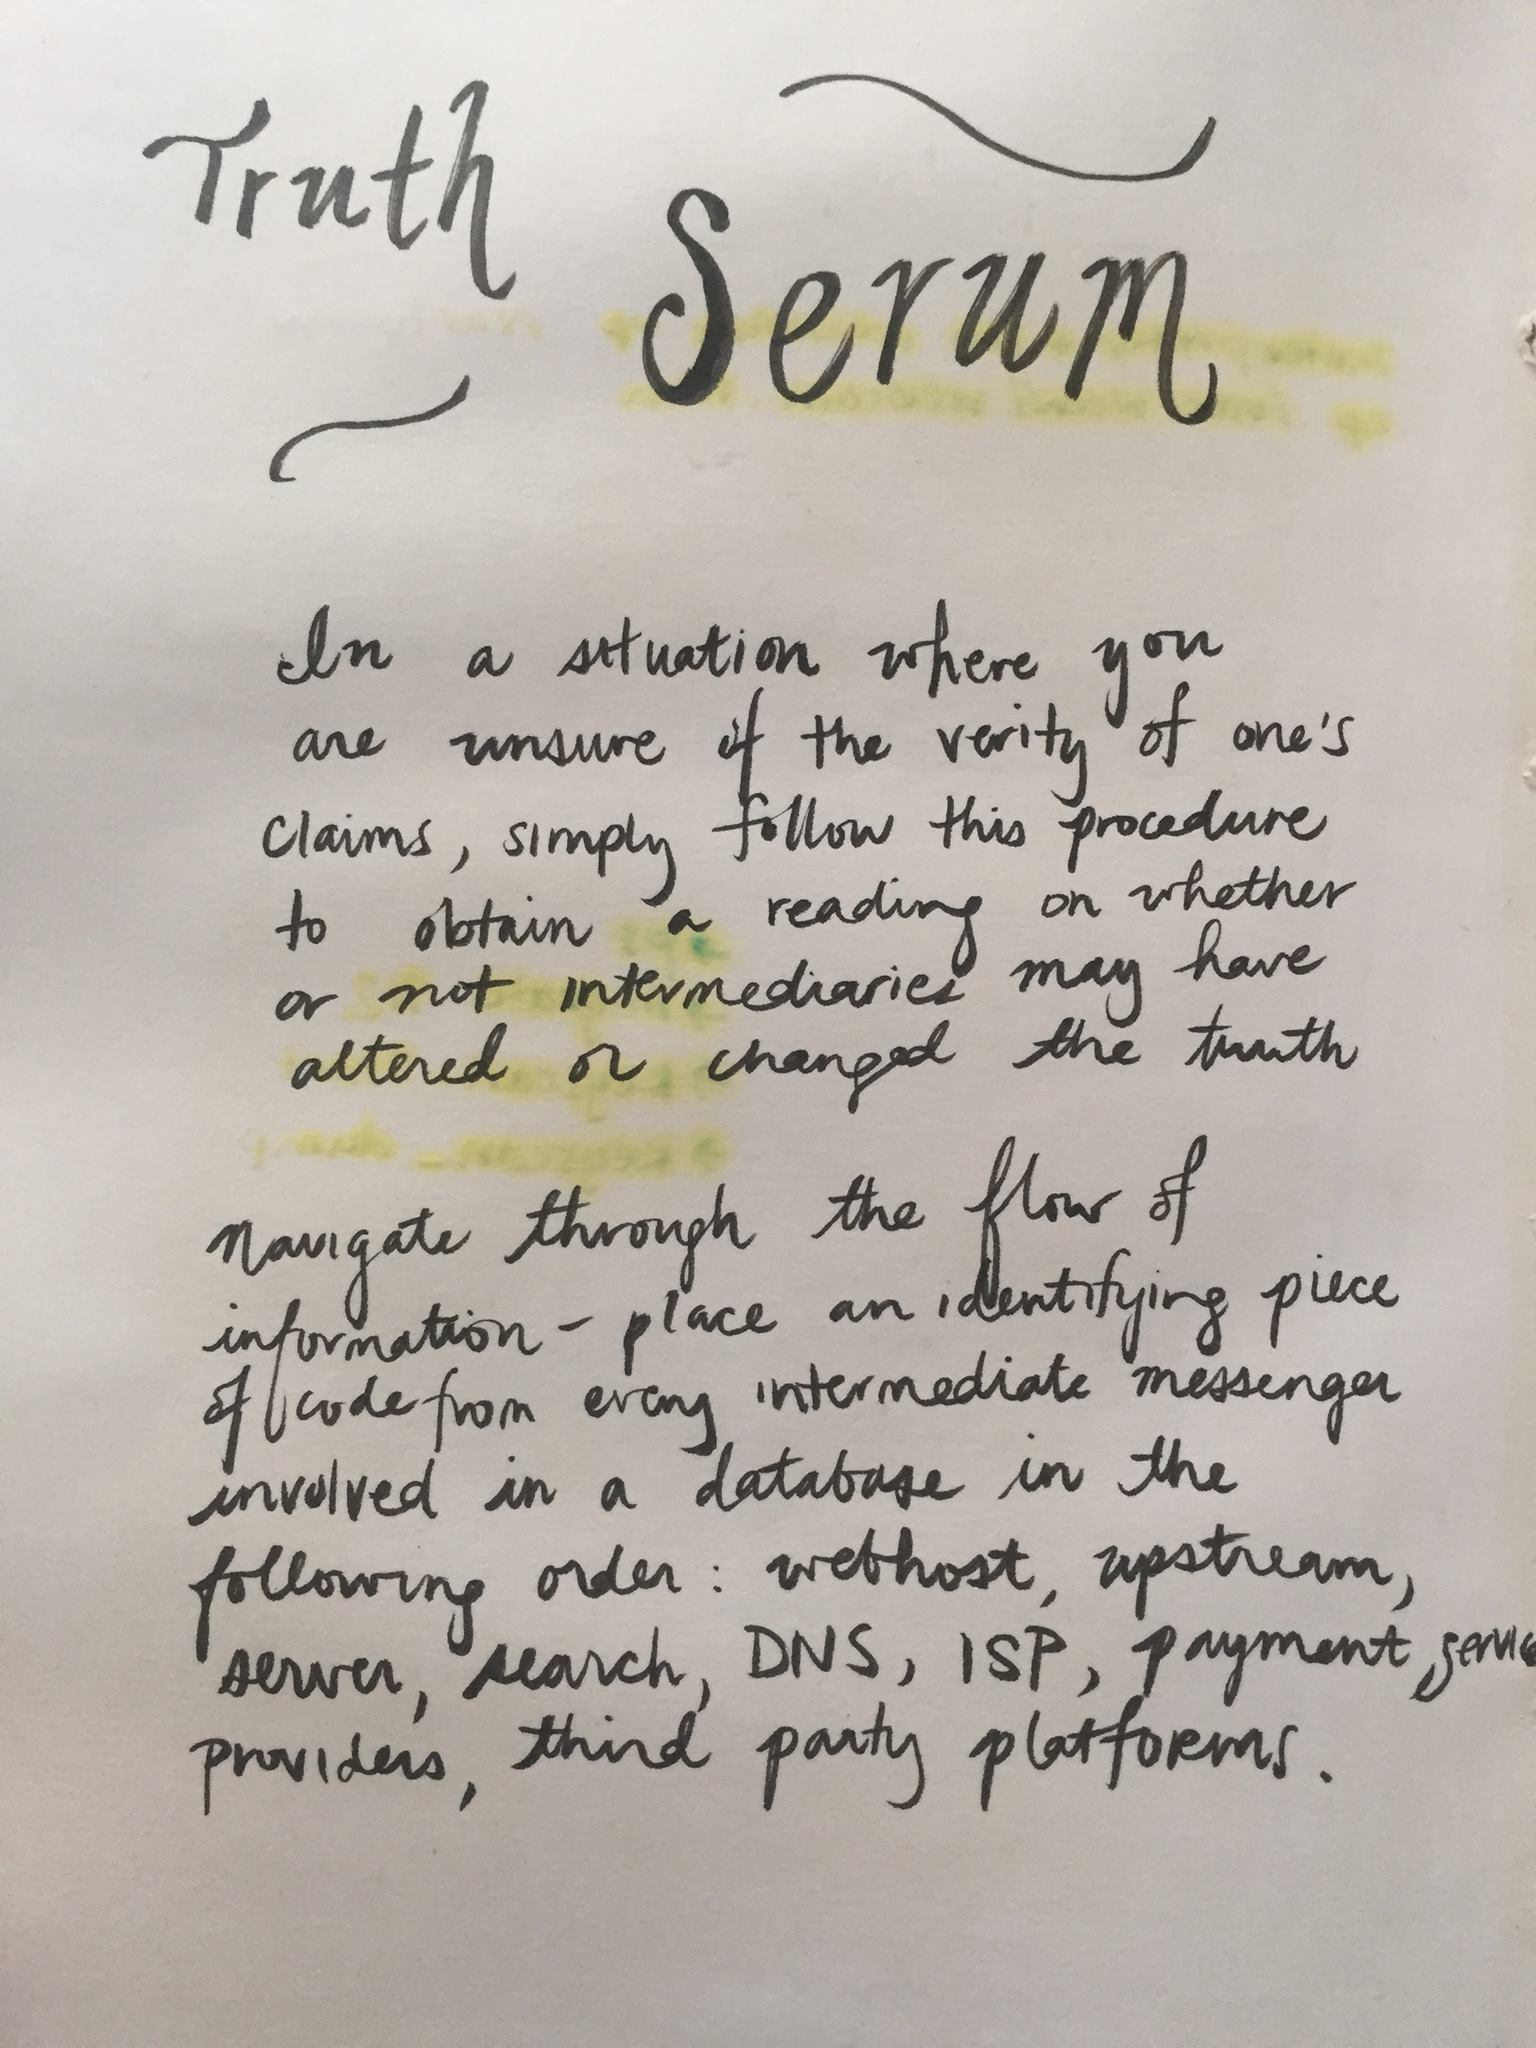 Truth
Serum
In a situation where you
are unsure if the verity of one's
claims, simply follow this procedure
to obtain a reading on whether
or not intermediaries may have
altered or changed the truth
Navigate through the flow of
information - place an identifying piece
of code from every intermediate messenger
involved in a database in the
following order: webhost, upstream,
server, search, DNS, ISP, payment, service
providers, third party platforms.